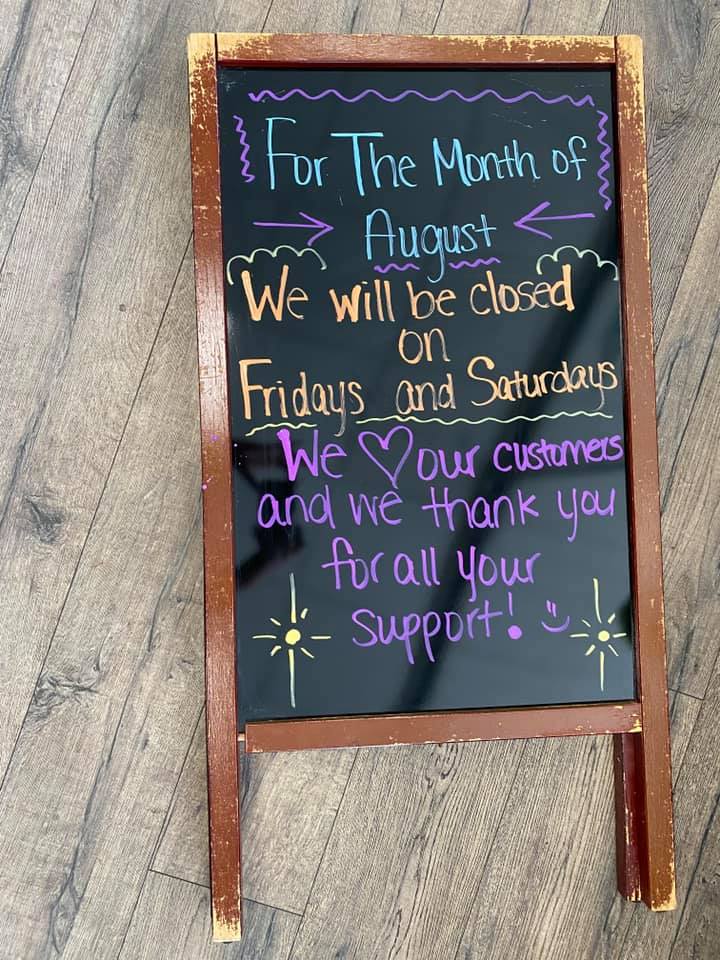 For The Month of
August
We will be closed
on
Fridays and Saturdays
We ♡ our customers
and we thank you
for all your
support!